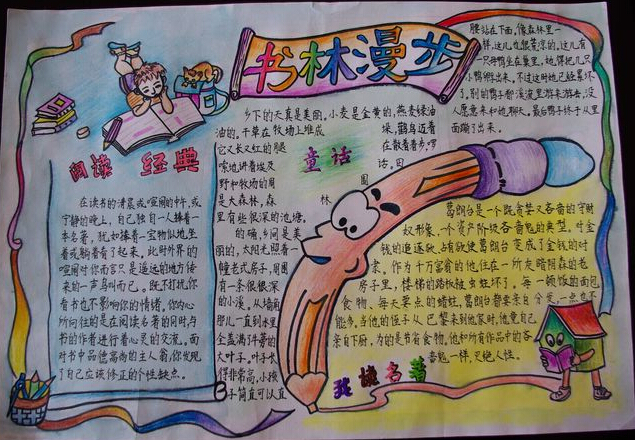 书林漫步
阅读 经典
在读书的清晨或喧闹的中午,或
宁静的晚上,自己独自一人捧着一
本名著,犹如捧着一宝物似地坐
着或躺着看了起来。此时外界的
喧闹对你而言只是遥远的地方传
来的一声鸟叫而已。既不打扰你
看书也不影响你的情绪。你的心
所向往的是在阅读名著的同时,与
书的作者进行着心灵的交流。面
对书中品德高尚的主人翁,你发现
了自己应该修正的个性缺点。
童话
乡下的天真是美丽,小麦是金黄的,燕麦绿油
油的,干草在牧场上堆成垛,鹳鸟迈着
它又长又红的腿在散着步,啰
嗦地讲着埃及话。田
野和牧场的周围
是大森林,森林
里有些很深的池塘。
的确,乡间是美
丽的,太阳光照着一
幢老式房子,周围
有一条很深
的小溪。从墙角
那儿一直到水里,
全盖满牛蒡的
大叶子。叶子长
得非常高,小孩
子简直可以直
腰站在下面。像森林里一
样,这儿也很荒凉的。这儿有
一只母鸭坐在巢里,她得把几只
小鸭孵出来。不过这时她已经累坏
了。别的鸭子都在溪流里游来游去,没
人愿意来和她聊天。最后鸭子终于从里
面蹦了出来。
葛朗台是一个既贪婪又吝啬的守财
奴形象,一个资产阶级吝啬鬼的典型。对金
钱的追逐欲、占有欲使葛朗台变成了金钱的奴
隶。作为十万富翁的他,住在一所灰暗阴森的老
房子里,楼梯的踏板被虫蛀坏了。每一顿饭的面包
食物、每天要点的蜡烛,葛朗台都要亲自分发,一点也不
能多。当他的侄子从巴黎来到他家时,他竟自己
亲自下厨。为的是节省食物。他和所有作品中的吝
啬鬼一样,灭绝人性。
我读名著